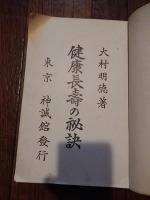 大村明徳著
健康長壽の祕訣
東京 神誠館發行